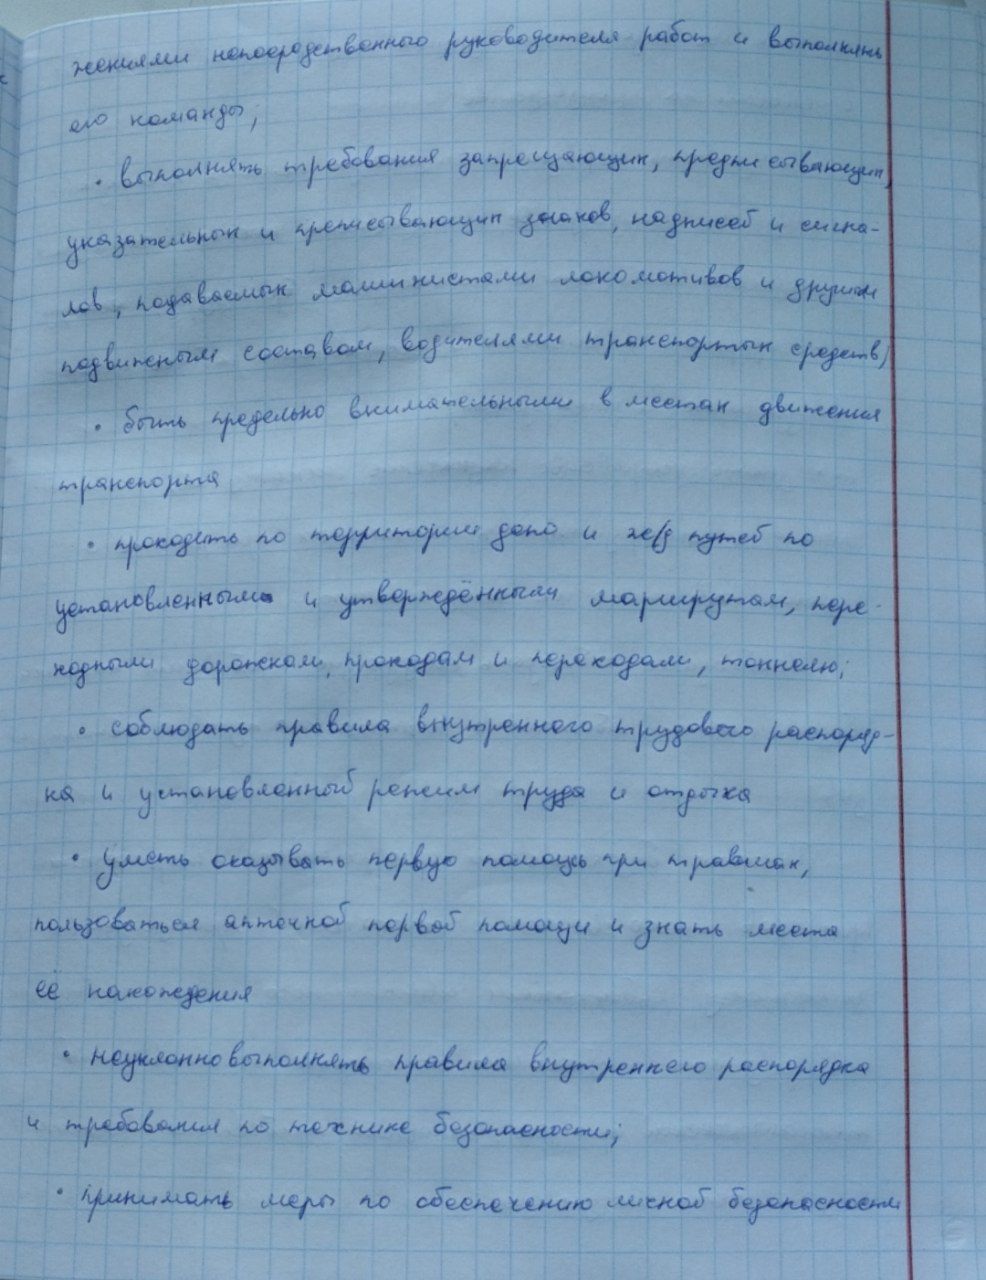 жениями непосредственного руководителя работ и выполнять
его команды;
• выполнять требования запрещающих, предписывающих,
указательных и предписывающих знаков, надписей и сигна-
лов, подаваемых машинистами локомотивов и другим
подвижным составом, водителями транспортых средств;
• быть предельно внимательными в местах движения
транспорта
• проходить по территории депо и ж/д путей по
установленным и утверждённым маршрутам, пере-
ходным дорожкам, проходам и переходам, тоннелю;
• соблюдать правила внутренного трудового распоряд-
ка и установленный режим труда и отдыха
• уметь оказывать первую помощь при травмах,
пользоваться аптечкой первой помощи и знать места
её нахождения
• неуклонно выполнять правила внутреннего распорядка
и требования по технике безопасности;
• принимать меры по обеспечению личной безопасности